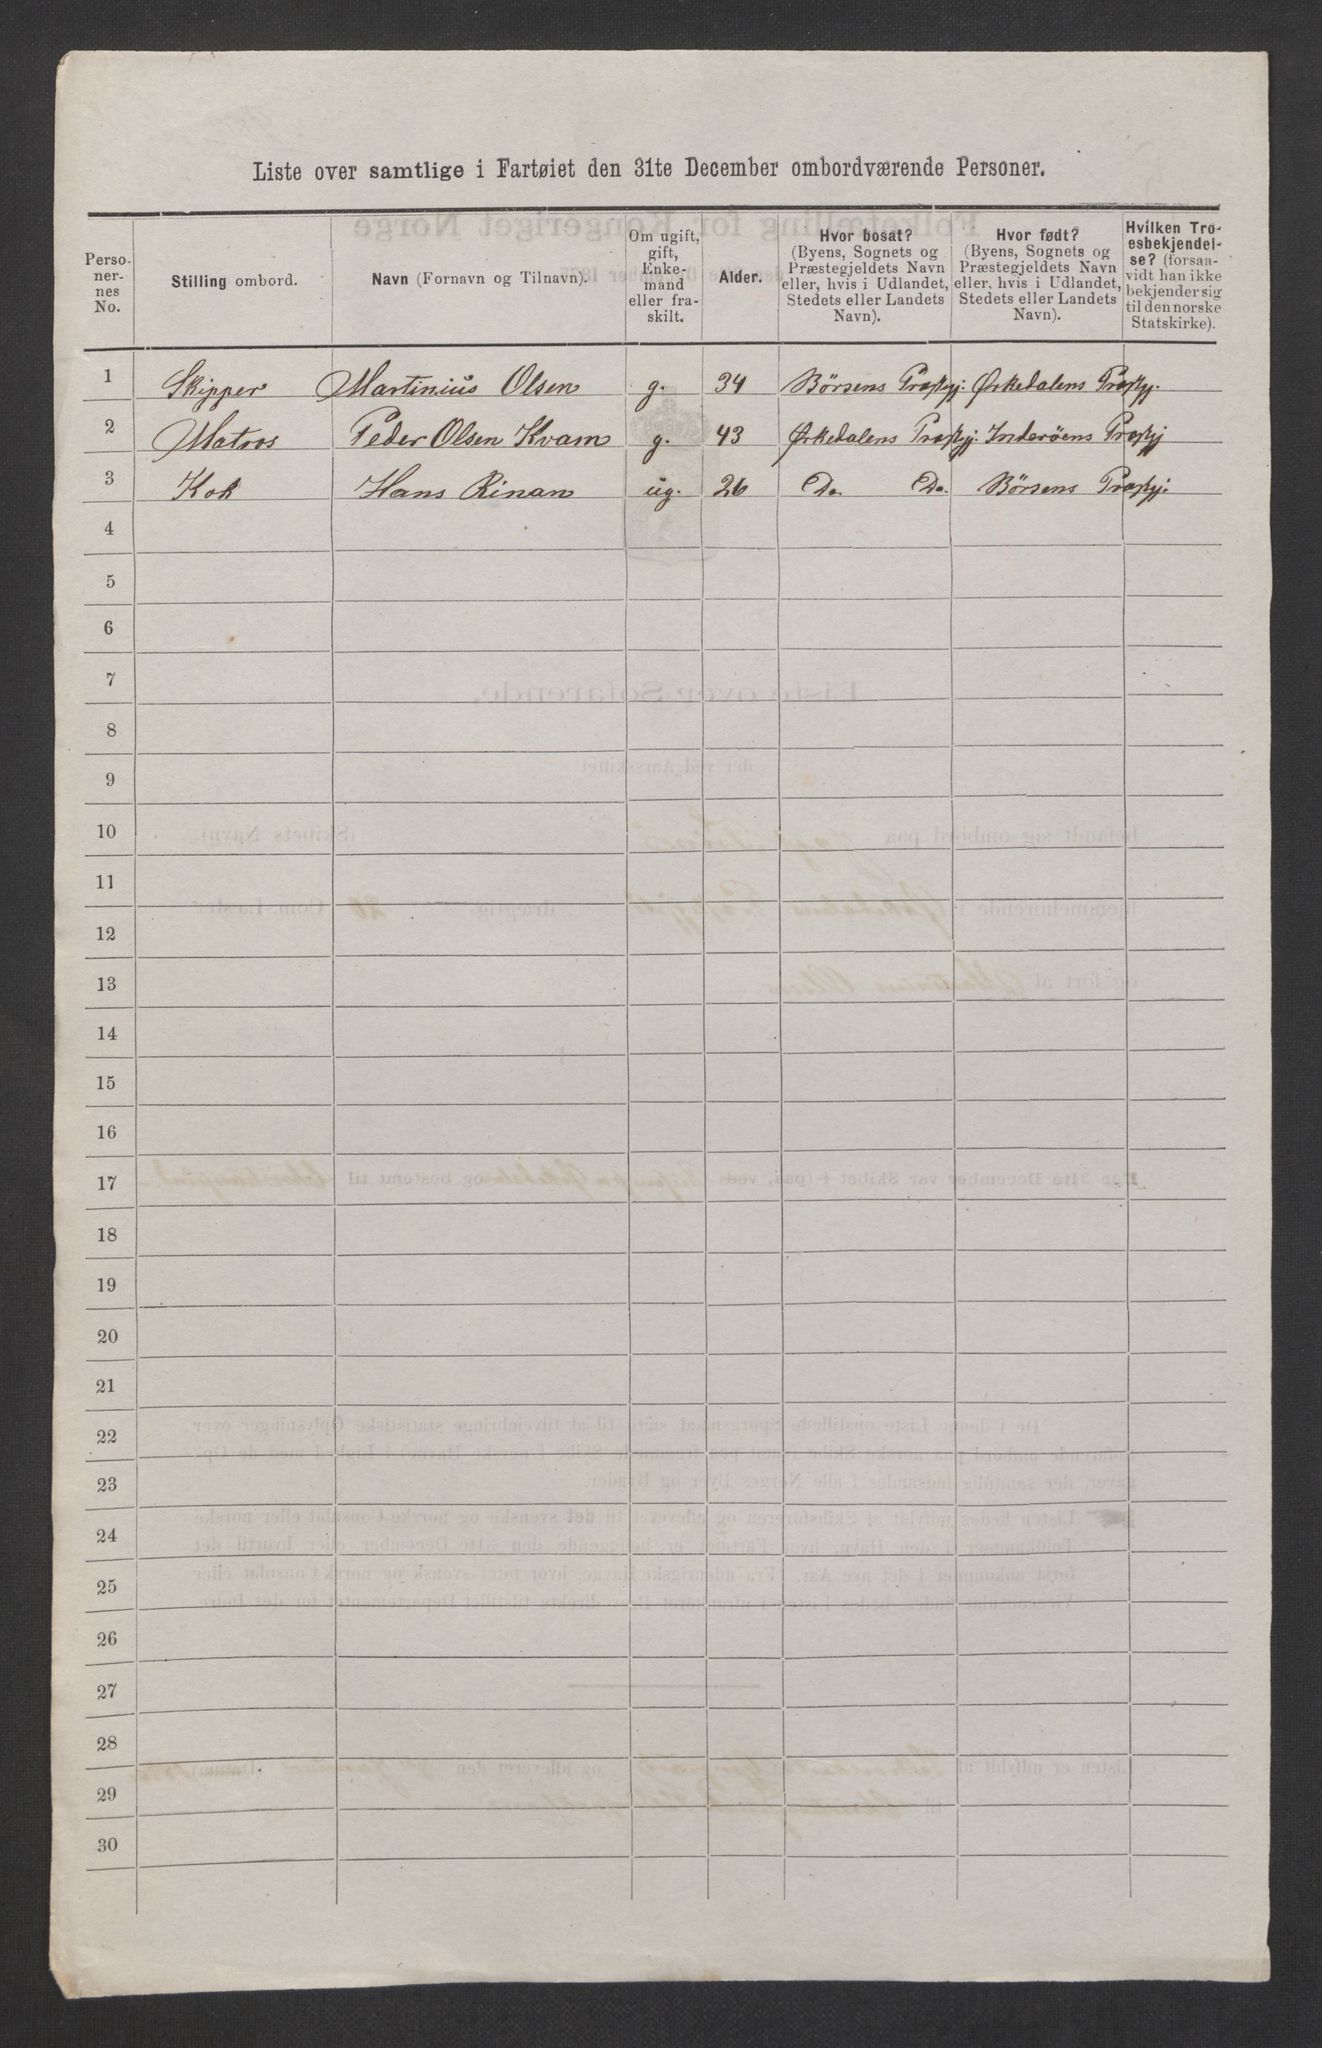 Liste over samtlige i Fartøiet den 31te December ombordværende Personer.
Perso-
ner-
nes
No.
Stilling ombord.
Navn (Fornavn og Tilnavn).
Om ugift,
gift,
Enke-
mand
eller fra-
skilt.
Alder.
Hvor bosat?
(Byens, Sognets og
Præstegjeldets Navn
eller, hvis i Udlandet,
Stedets eller Landets
Navn).
Hvor født?
(Byens, Sognets og
Præstegjeldets Navn
eller, hvis i Udlandet,
Stedets eller Landets
Navn).
Hvilken Tro-
esbekjendel-
se? (forsaa-
vidt han ikke
bekjender sig
til den norske
Statskirke).
1 Skipper Martinius Olsen g. 34 Börsens Præstgj: Ørkedalens Præstgj.
2 Matros Peder Olsen Kvam g. 43 Ørkedalens Præstgj: Inderöens Præstgj
3 Kok Hans Rinan ug. 26 Do. Do. Börsens Præstgj:
4
5
6
7
8
9
10
11
12
13
14
15
16
17
18
19
20
21
22
23
24
25
26
27
28
29
30